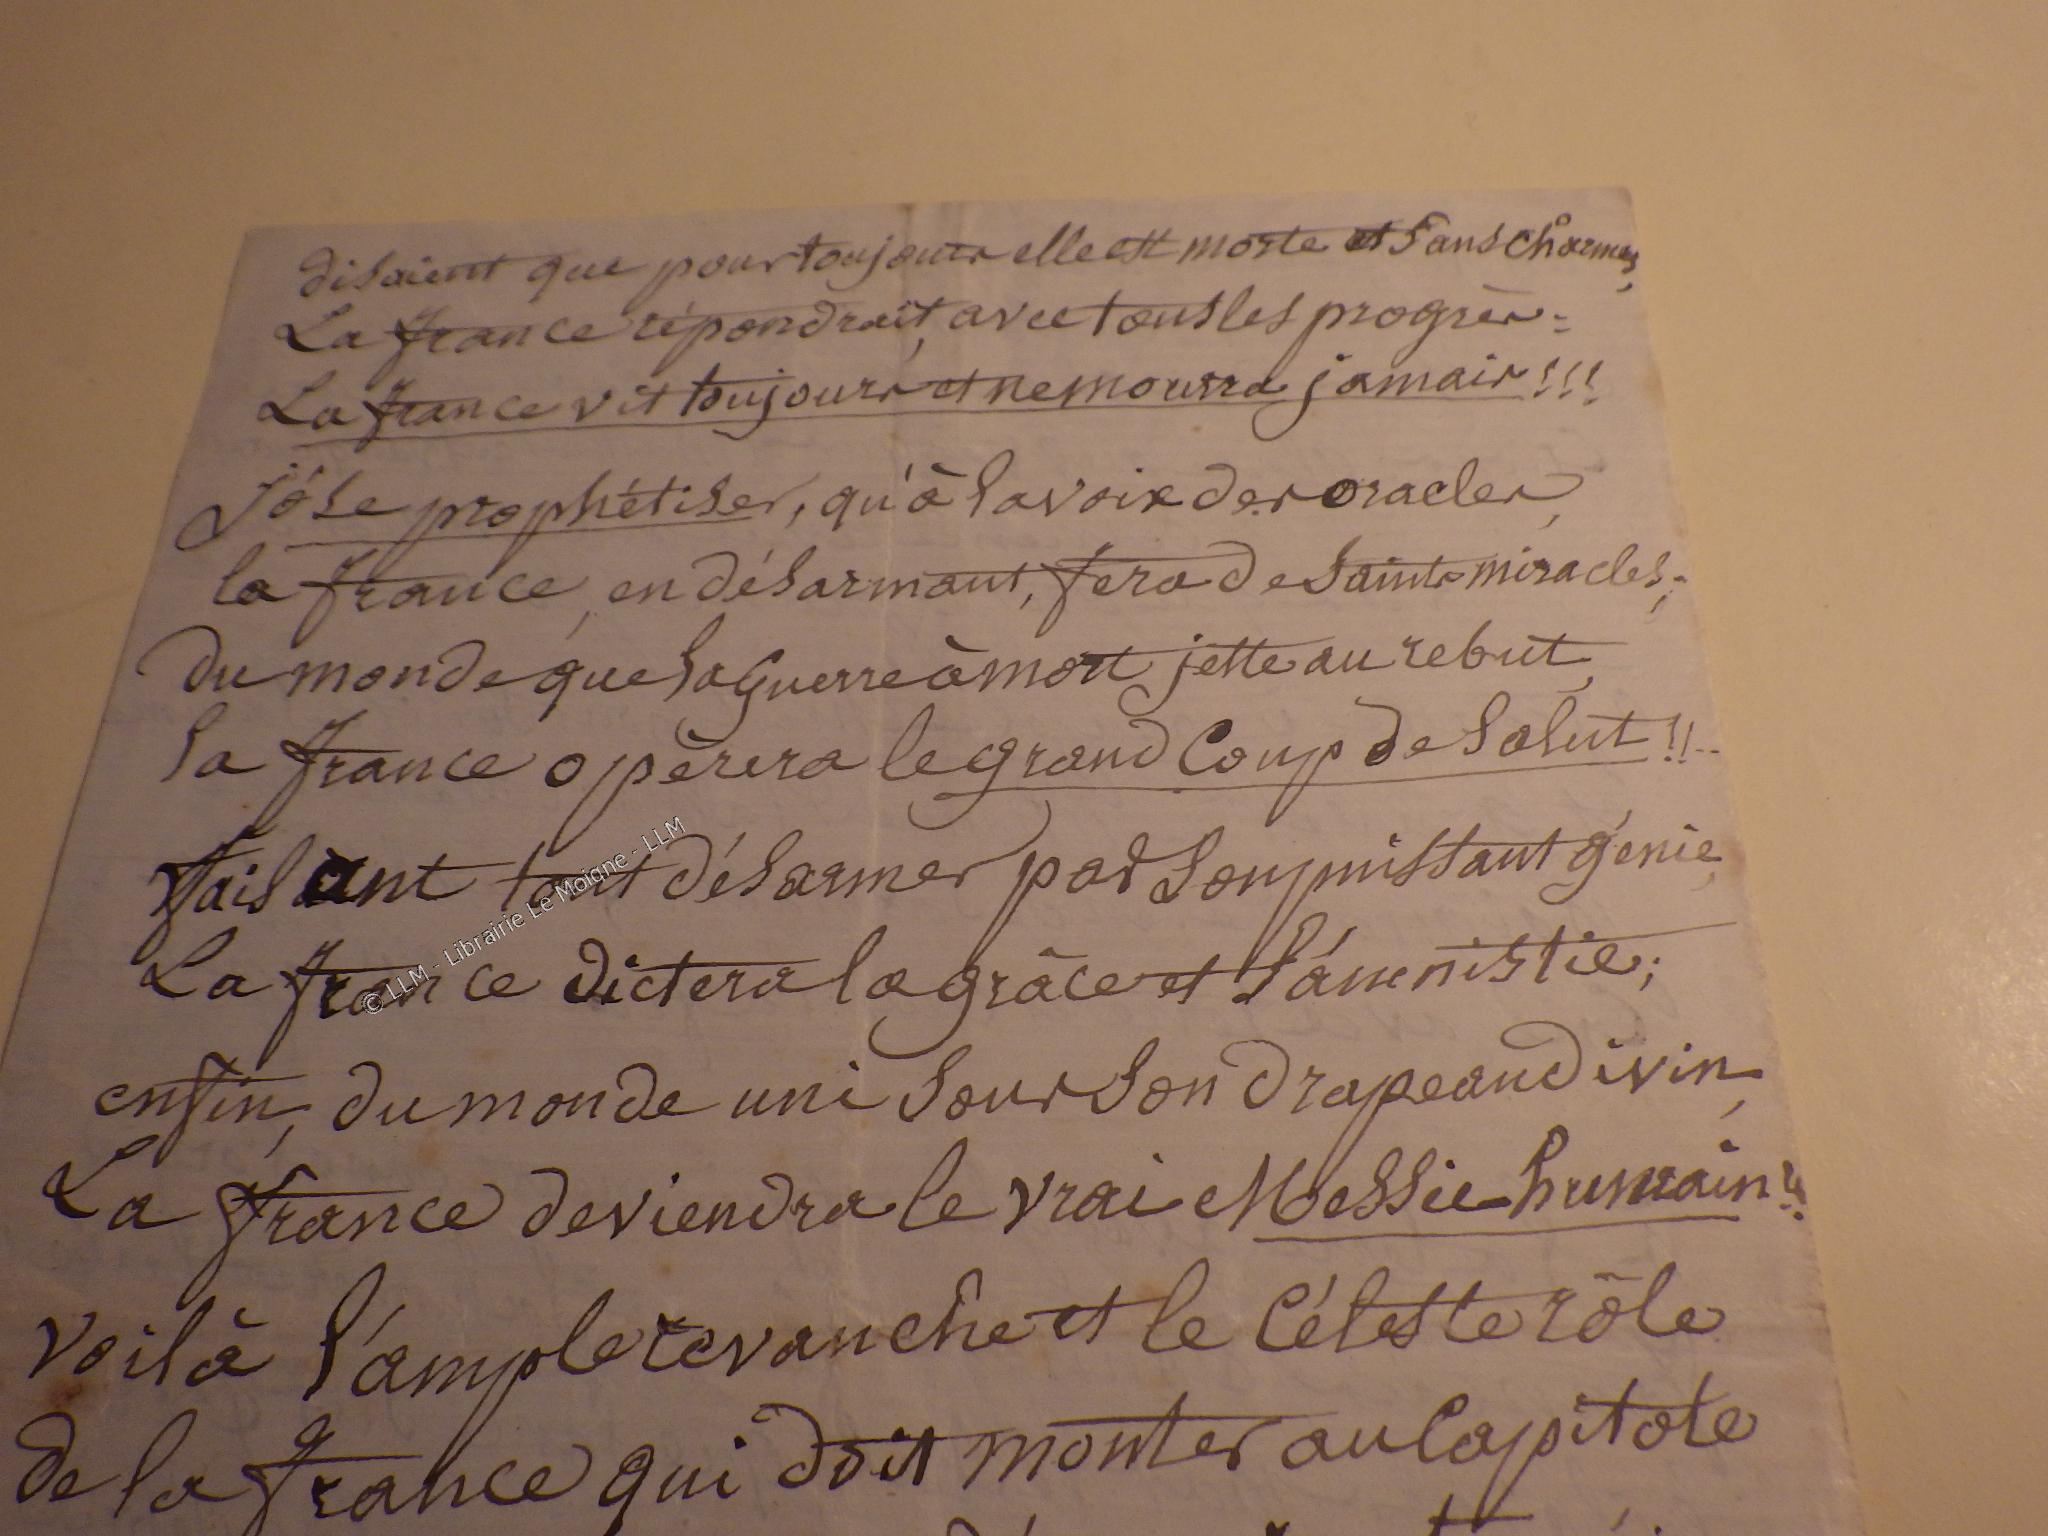 disaient que pour toujours elle est morte et sans charmes,
La france répondrait, avec tous les progrès:
La france vit toujours et ne mourra jamais!!!
J'ose prophétiser, qu'à la voix des oracles,
la france, en désarmant, fera de saints miracles;
du monde que la guerre à mort jette au rebut,
la france opèrera le grand Coup de Salut!!..
faisant tout désarmer par son puissant génie,
La france dictera la grâce et l'amnistie;
enfin, du monde uni sous son drapeau divin,
La france deviendra le vrai Messie-humain!!
voilà l'ample revanche et le Céleste rôle
de la france qui doit monter au Capitole
© LLM - Librairie Le Moigne - LLM